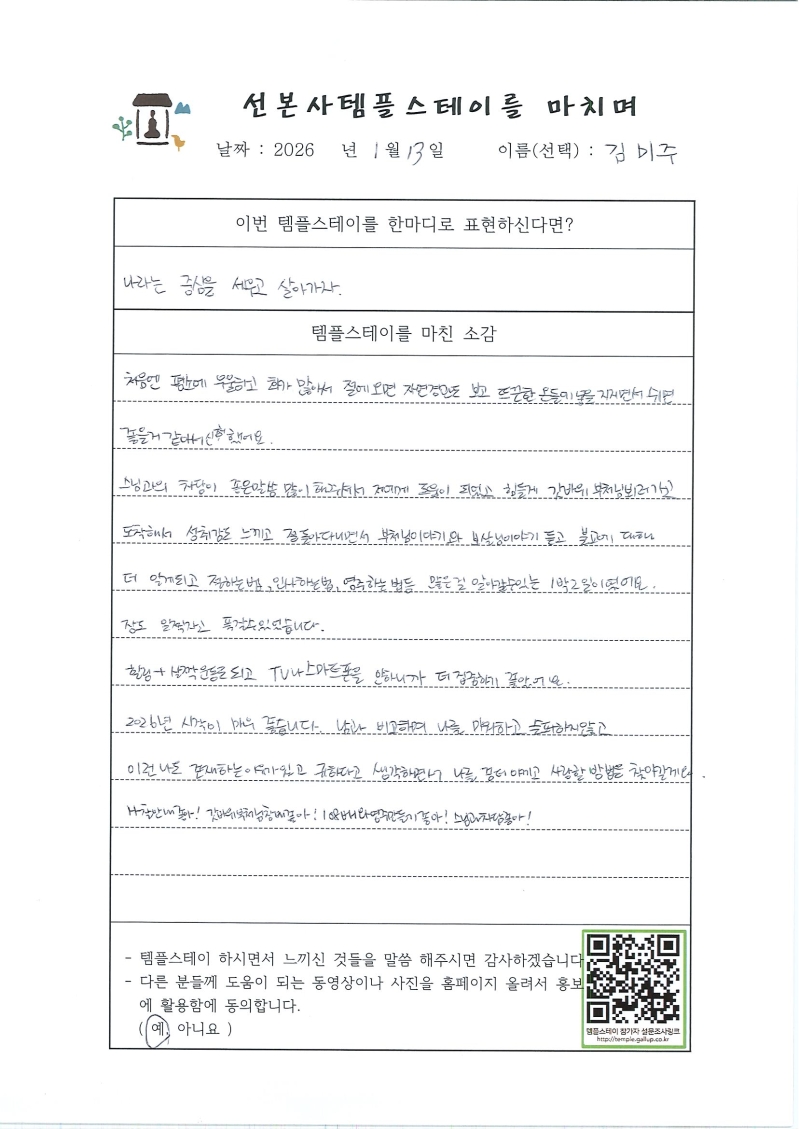 선본사템플스테이를 마치며
날짜 : 2026 년 1월 13일 이름(선택) : 김미주
이번 템플스테이를 한마디로 표현하신다면?
나라는 중심을 세우고 살아가자.
템플스테이를 마친 소감
처음엔 평소에 우울하고 화가 많아서 절에오면 자연경관도 보고 뜨끈한 온돌에 몸을 지지면서 쉬면
좋을거 같아서 신청했어요.
스님과의 차담이 좋은말씀 많이 해주셔서 저에게 도움이 되었고 힘들게 갓바위 부처님뵈러가고
도착해서 성취감도 느끼고 절돌아다니면서 부처님이야기와 보살님이야기 듣고 불교에 대해
더 알게되고 절하는법, 인사하는법, 염주하는법등 많은걸 알아갈수있는 1박2일이였어요.
잠도 일찍자고 푹잘수있었습니다.
힐링 + 살짝운동도되고 TV나 스마트폰을 안하니까 더 집중하기 좋았어요.
2026년 시작이 매우 좋습니다. 남과 비교하며 나를 미워하고 슬퍼하지않고
이런 나도 존재하는 이유가있고 귀하다고 생각하면서 나를 좀더 아끼고 사랑할 방법을 찾아갈게요.
사찰안내좋아! 갓바위부처님참배좋아! 108배와염주만들기좋아! 스님과차담좋아!
- 템플스테이 하시면서 느끼신 것들을 말씀 해주시면 감사하겠습니다
- 다른 분들께 도움이 되는 동영상이나 사진을 홈페이지 올려서 홍보
에 활용함에 동의합니다.
( 예, 아니요 )
템플스테이 참가자 설문조사링크
http://temple.gallup.co.kr